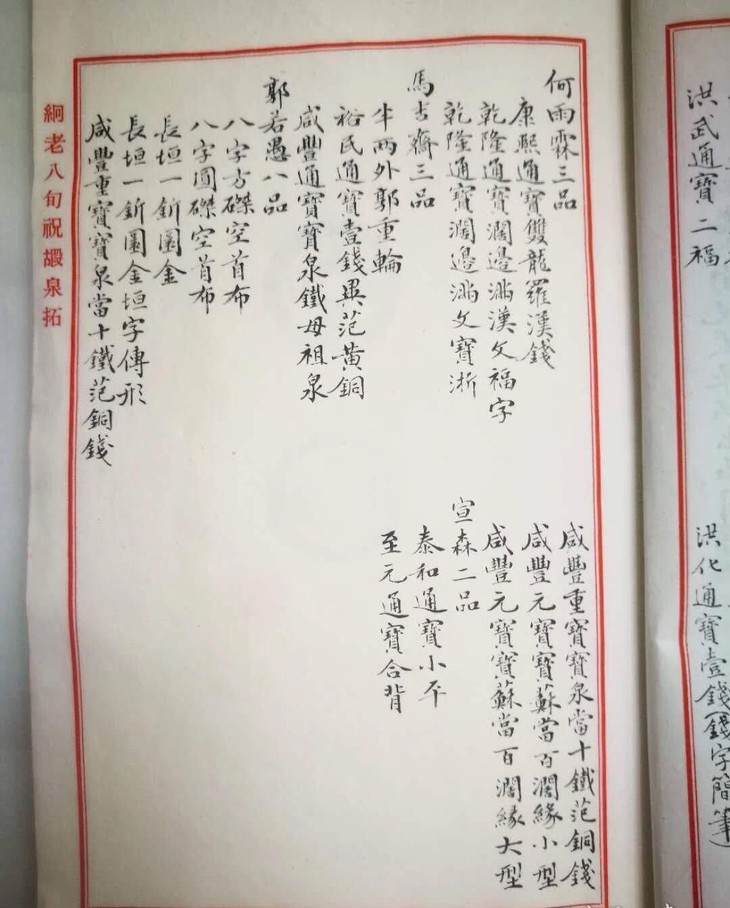 洪武通寶二福
洪化通寶壹錢(錢字簡筆)
何雨霖三品
康熙通寶雙龍羅漢錢
乾隆通寶濶邊滿漢文福字
乾隆通寶濶邊滿文寶浙
馬古齋三品
半兩外郭重輪
裕民通寶壹錢異范黃銅
咸豐通寶寶泉鐵母祖泉
郭若愚八品
八字方磔空首布
八字圓磔空首布
長垣一釿圜金
長垣一釿圜金垣字傳形
咸豐重寶寶泉當十鐵范銅錢
咸豐重寶寶泉當十鐵范銅錢
咸豐元寶寶蘇當百濶緣小型
咸豐元寶寶蘇當百濶緣大型
宣森二品
泰和通寶小平
至元通寶合背
絅老八旬祝嘏泉拓